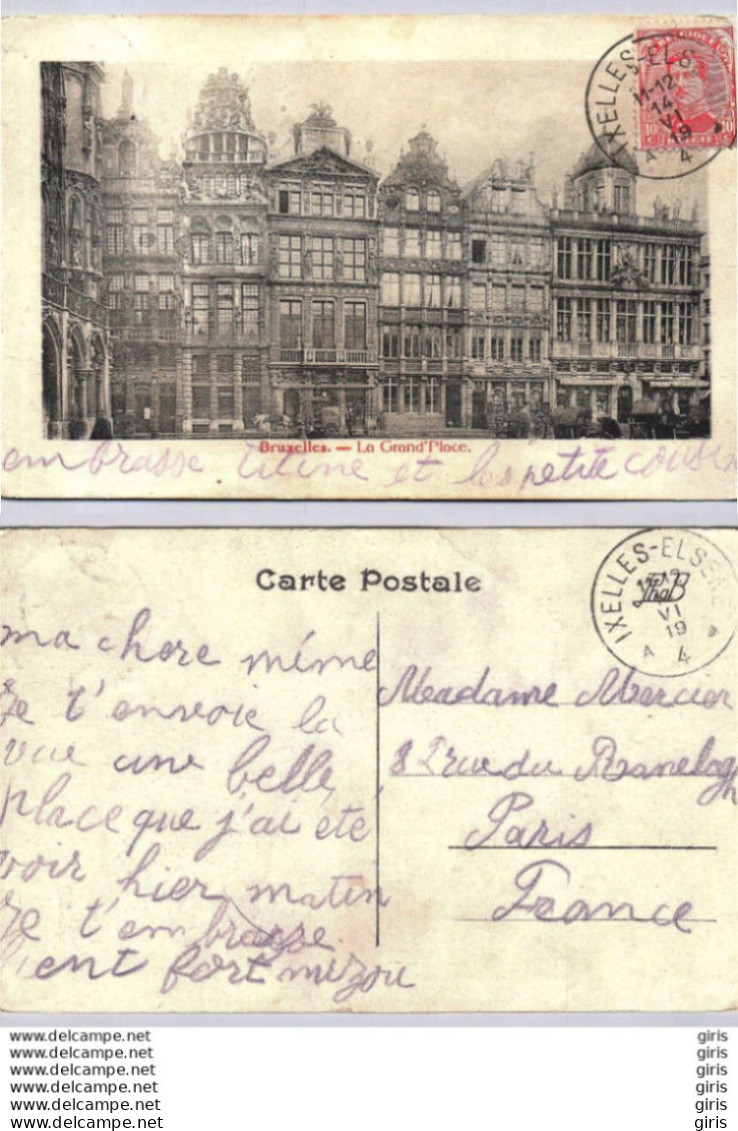 BELGIQUE
IXELLES-ELS
11-12
14
VI
19
A 4
Bruxelles. — La Grand'Place.
embrasse titine et les petite cousin
Carte Postale
IXELLES-ELSENE
VI
19
A 4
ma chere mémé
Je t'envoie la
vue une belle
place que j'ai été
voir hier matin
Je t'embrasse
bient fort mizou
Madame Mercier
82 rue du Ranelagh
Paris
France
www.delcampe.net giris
www.delcampe.net giris
www.delcampe.net giris
www.delcampe.net giris
www.delcampe.net giris
www.delcampe.net giris